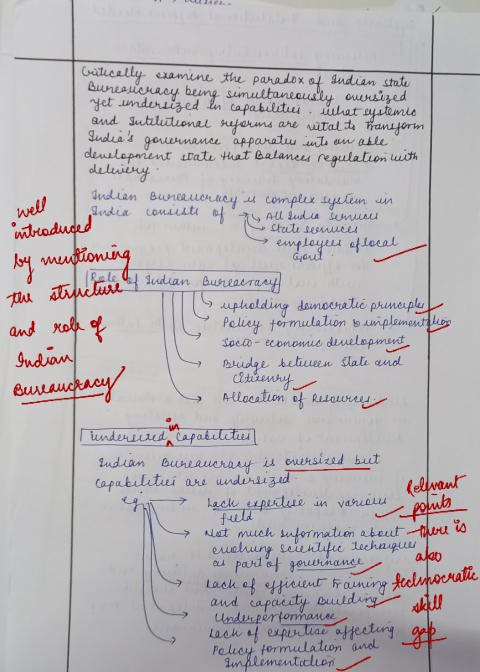 Critically examine the paradox of Indian state
Bureaucracy being simultaneously oversized
yet undersized in capabilities. what systemic
and Intitutional reforms are vital to transform
India's governance apparatus into an able
development state that Balances regulation with
delivery.
Indian Bureaucracy is complex system in
India consists of → All India services
→ State services
→ employees of local
Govt.
well
introduced
by mentioning
the structure
and role of
Indian
Bureaucracy
Role of Indian Bureaucracy
upholding democratic principles
Policy formulation & implementation
Socio-economic development
Bridge between State and
Citizenry
Allocation of Resources
Undersized in Capabilities
Indian Bureaucracy is oversized but
capabilities are undersized.
eg. → Lack expertise in various
field
→ Not much information about
evolving scientific techniques
as part of governance
→ Lack of efficient training
and capacity building
→ Underperformance
→ Lack of expertise affecting
Policy formulation and
Implementation
Relevant
points
there is
also
technocratic
skill
gap